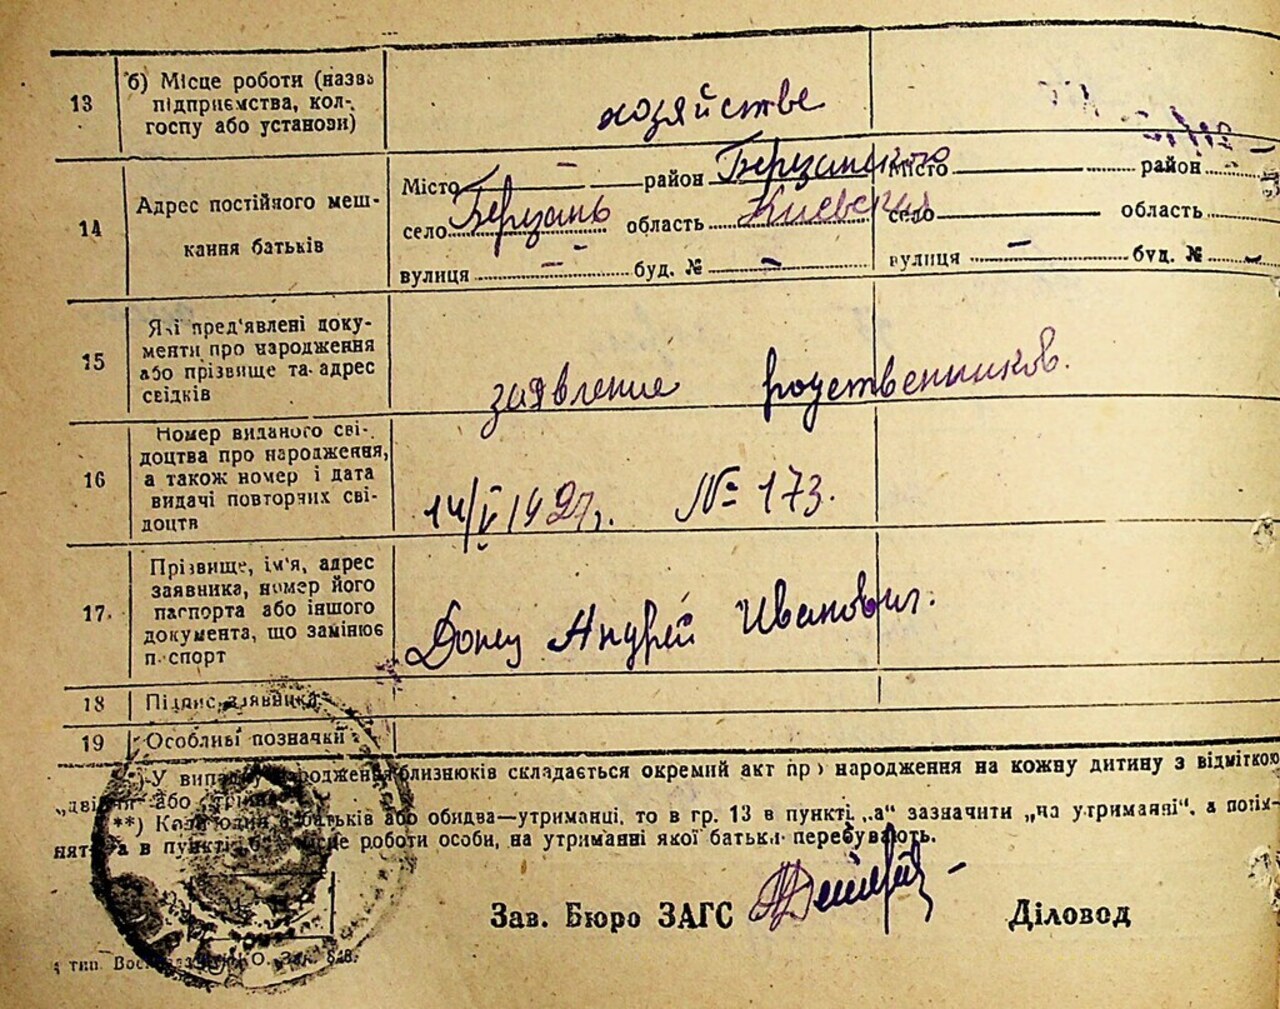 13
б) Місце роботи (назва
підприємства, кол-
госпу або установи)
хозяйстве
14
Адрес постійного меш-
кання батьків
Місто — район Березанского
село Березань область Киевская
вулиця — буд. № —
Місто район
село область
вулиця — буд. № —
15
Які пред'явлені доку-
менти про народження
або прізвище та адрес
свідків
заявление родственников.
16
Номер виданого сві-
доцтва про народження,
а також номер і дата
видачі повторних сві-
доцтв
14/V № 173.
17.
Прізвище, ім'я, адрес
заявника, номер його
паспорта або іншого
документа, що замінює
паспорт
Донец Андрей Иванович.
18
Підпис заявника
19
Особливі позначки
*) У випадку народження близнюків складається окремий акт про народження на кожну дитину з відміткою
„двійня“ або „трійня“
**) Коли один з батьків або обидва—утриманці, то в гр. 13 в пункті „а“ зазначити „на утриманні“, а потім-
в пункті місце роботи особи, на утриманні якої батьки перебувають.
Зав. Бюро ЗАГС
Діловод
тип. Зак. 848.